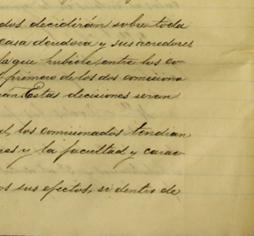 dos decidirán sobre toda
casa deudora y sus acredores
la que hubiere entre los co-
l primero de los dos comisiona
rán. Estas decisiones seran
al, los comisionados tendran
nes y la facultad y carac-
os sus efectos, si dentro de